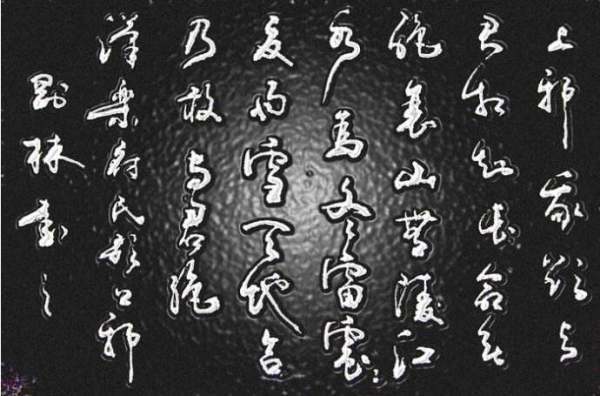 上邪我欲与
君相知长命无
绝衰山無陵江
水为冬雷震々
夏雨雪天地合
乃敢与君绝
漢樂府民歌上邪
林書之